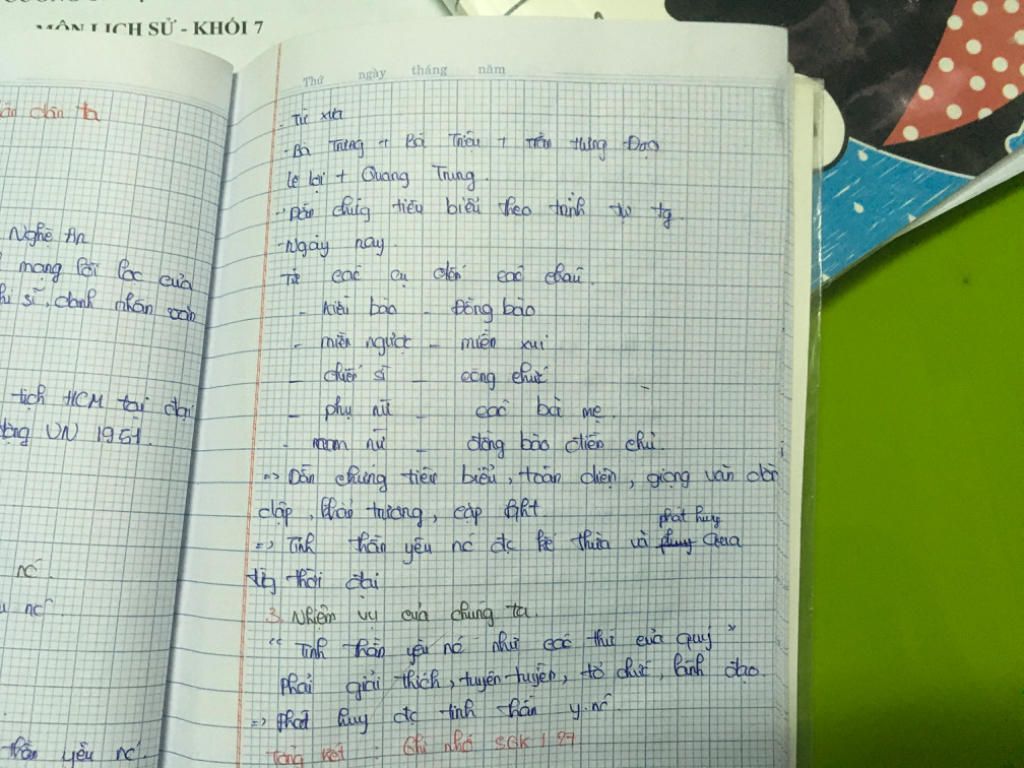 MÔN LỊCH SỬ - KHỐI 7
dân ta
Nghệ An
mạng lỗi lạc của
sĩ, danh nhân văn
tịch HCM tại đại
VN 1951.
nc'.
nc'
yêu nc'.
Thứ ngày tháng năm
- Từ xưa
- Bà Trưng + Bà Triệu + Trần Hưng Đạo
Lê Lợi + Quang Trung.
- Dẫn chứng tiêu biểu theo trình tự tg.
- Ngày nay.
Từ các cụ đến các cháu.
- kiều bào - Đồng bào
- miền ngược - miền xuôi
- chiến sĩ - công chức
- phụ nữ - các bà mẹ.
- nam nữ - đồng bào điền chủ.
=> Dẫn chứng tiêu biểu, toàn diện, giọng văn dồn
dập, khẩn trương, cặp qht
phát huy
=> Tinh thần yêu nc' đc kế thừa và qua
từg thời đại
3. Nhiệm vụ của chúng ta.
" Tinh thần yêu nc' như các thứ của quý "
Phải giải thích, tuyên truyền, tổ chức, lãnh đạo.
=> phát huy đc tinh thần y.nc'.
Tổng kết : Ghi nhớ SGK / 27